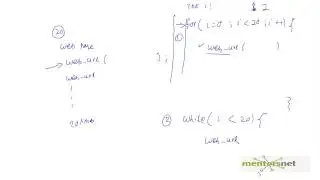 20
web page
web_url (
web_url
20 times
int i;
1
for( i=0 ; i < 20 ; i++) {
web_url ( ) ;
}
2 while( i < 20) {
web_url
mentorsnet